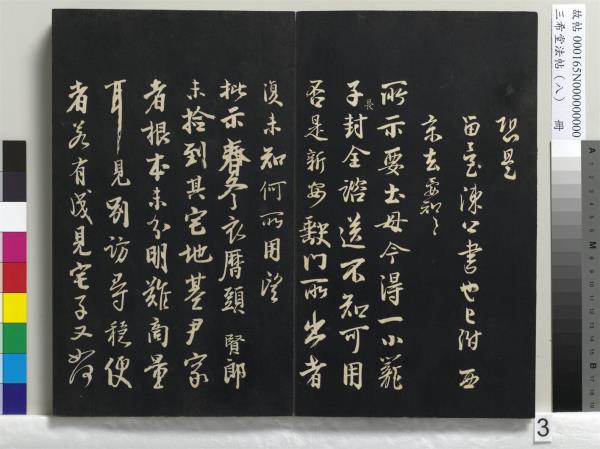 故帖 000165N000000000
三希堂法帖（八） 冊
恐是
留臺陳公書也已附西
京去安知之
所示要土母今得一小籠
子封全諮送不知可用
否是新安
門所出者
復未知何所用望
批示春冬衣曆頭賢郎
未拾到其宅地基尹家
者根本未分明難商量
耳見別訪尋穩便
者若有成見宅子又
3